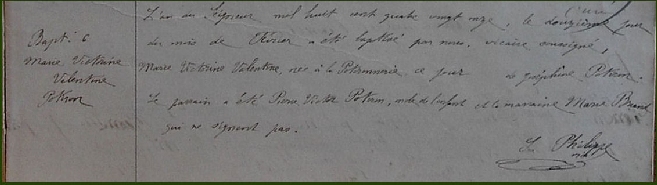 Bapt. 6
Marie Victorine
Valentine
Potron
L'an du Seigneur mil huit cent quatre vingt onze, le douzième jour
du mois de Février a été baptisé par nous, vicaire soussigné,
Marie Victorine Valentine, née à la ce jour de Joséphine Potron.
Le parrain a été Pierre Victor Potron, oncle de l'enfant et la marraine Marie
qui ne signent pas.
Philippe